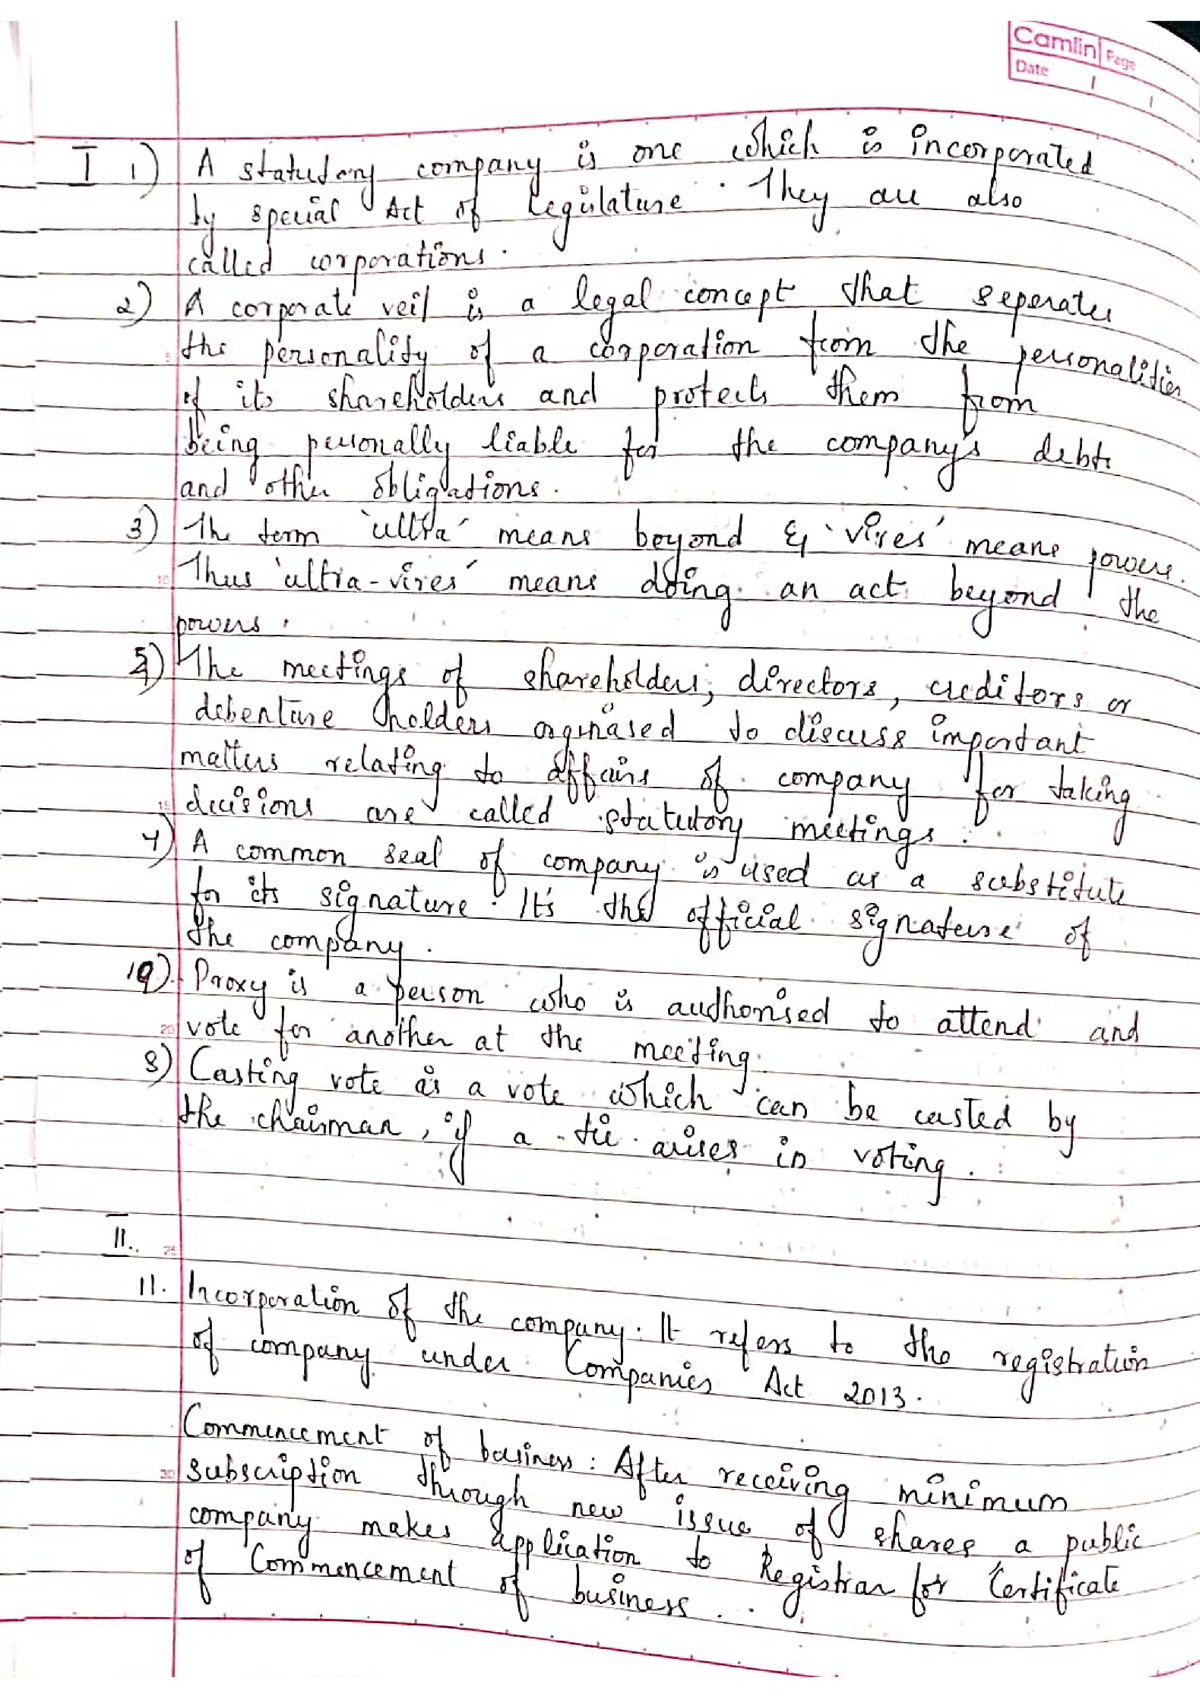 Camlin Page
Date / /
I 1) A statutory company is one which is incorporated
by special Act of Legislature. They are also
called corporations.
2) A corporate veil is a legal concept that seperates
5
the personality of a corporation from the personalities
of its shareholders and protects them from
being personally liable for the company's debts
and other obligations.
3) The term 'ultra' means beyond & 'vires' means powers.
10
Thus 'ultra-vires' means doing an act beyond the
powers.
5) The meetings of shareholders, directors, creditors or
debenture holders orginased to discuss important
matters relating to affairs of company for taking
15
decisions are called statutory meetings.
4) A common seal of company is used as a substitute
for its signature. It's the official signature of
the company.
10) Proxy is a person who is authorised to attend and
20
vote for another at the meeting.
8) Casting vote is a vote which can be casted by
the chairman, if a tie arises in voting.
II.
25
11. Incorporation of the company. It refers to the registration
of company under Companies Act 2013.
Commencement of business: After receiving minimum
30
subscription through new issue of shares a public
company makes application to Registrar for Certificate
of Commencement of business.